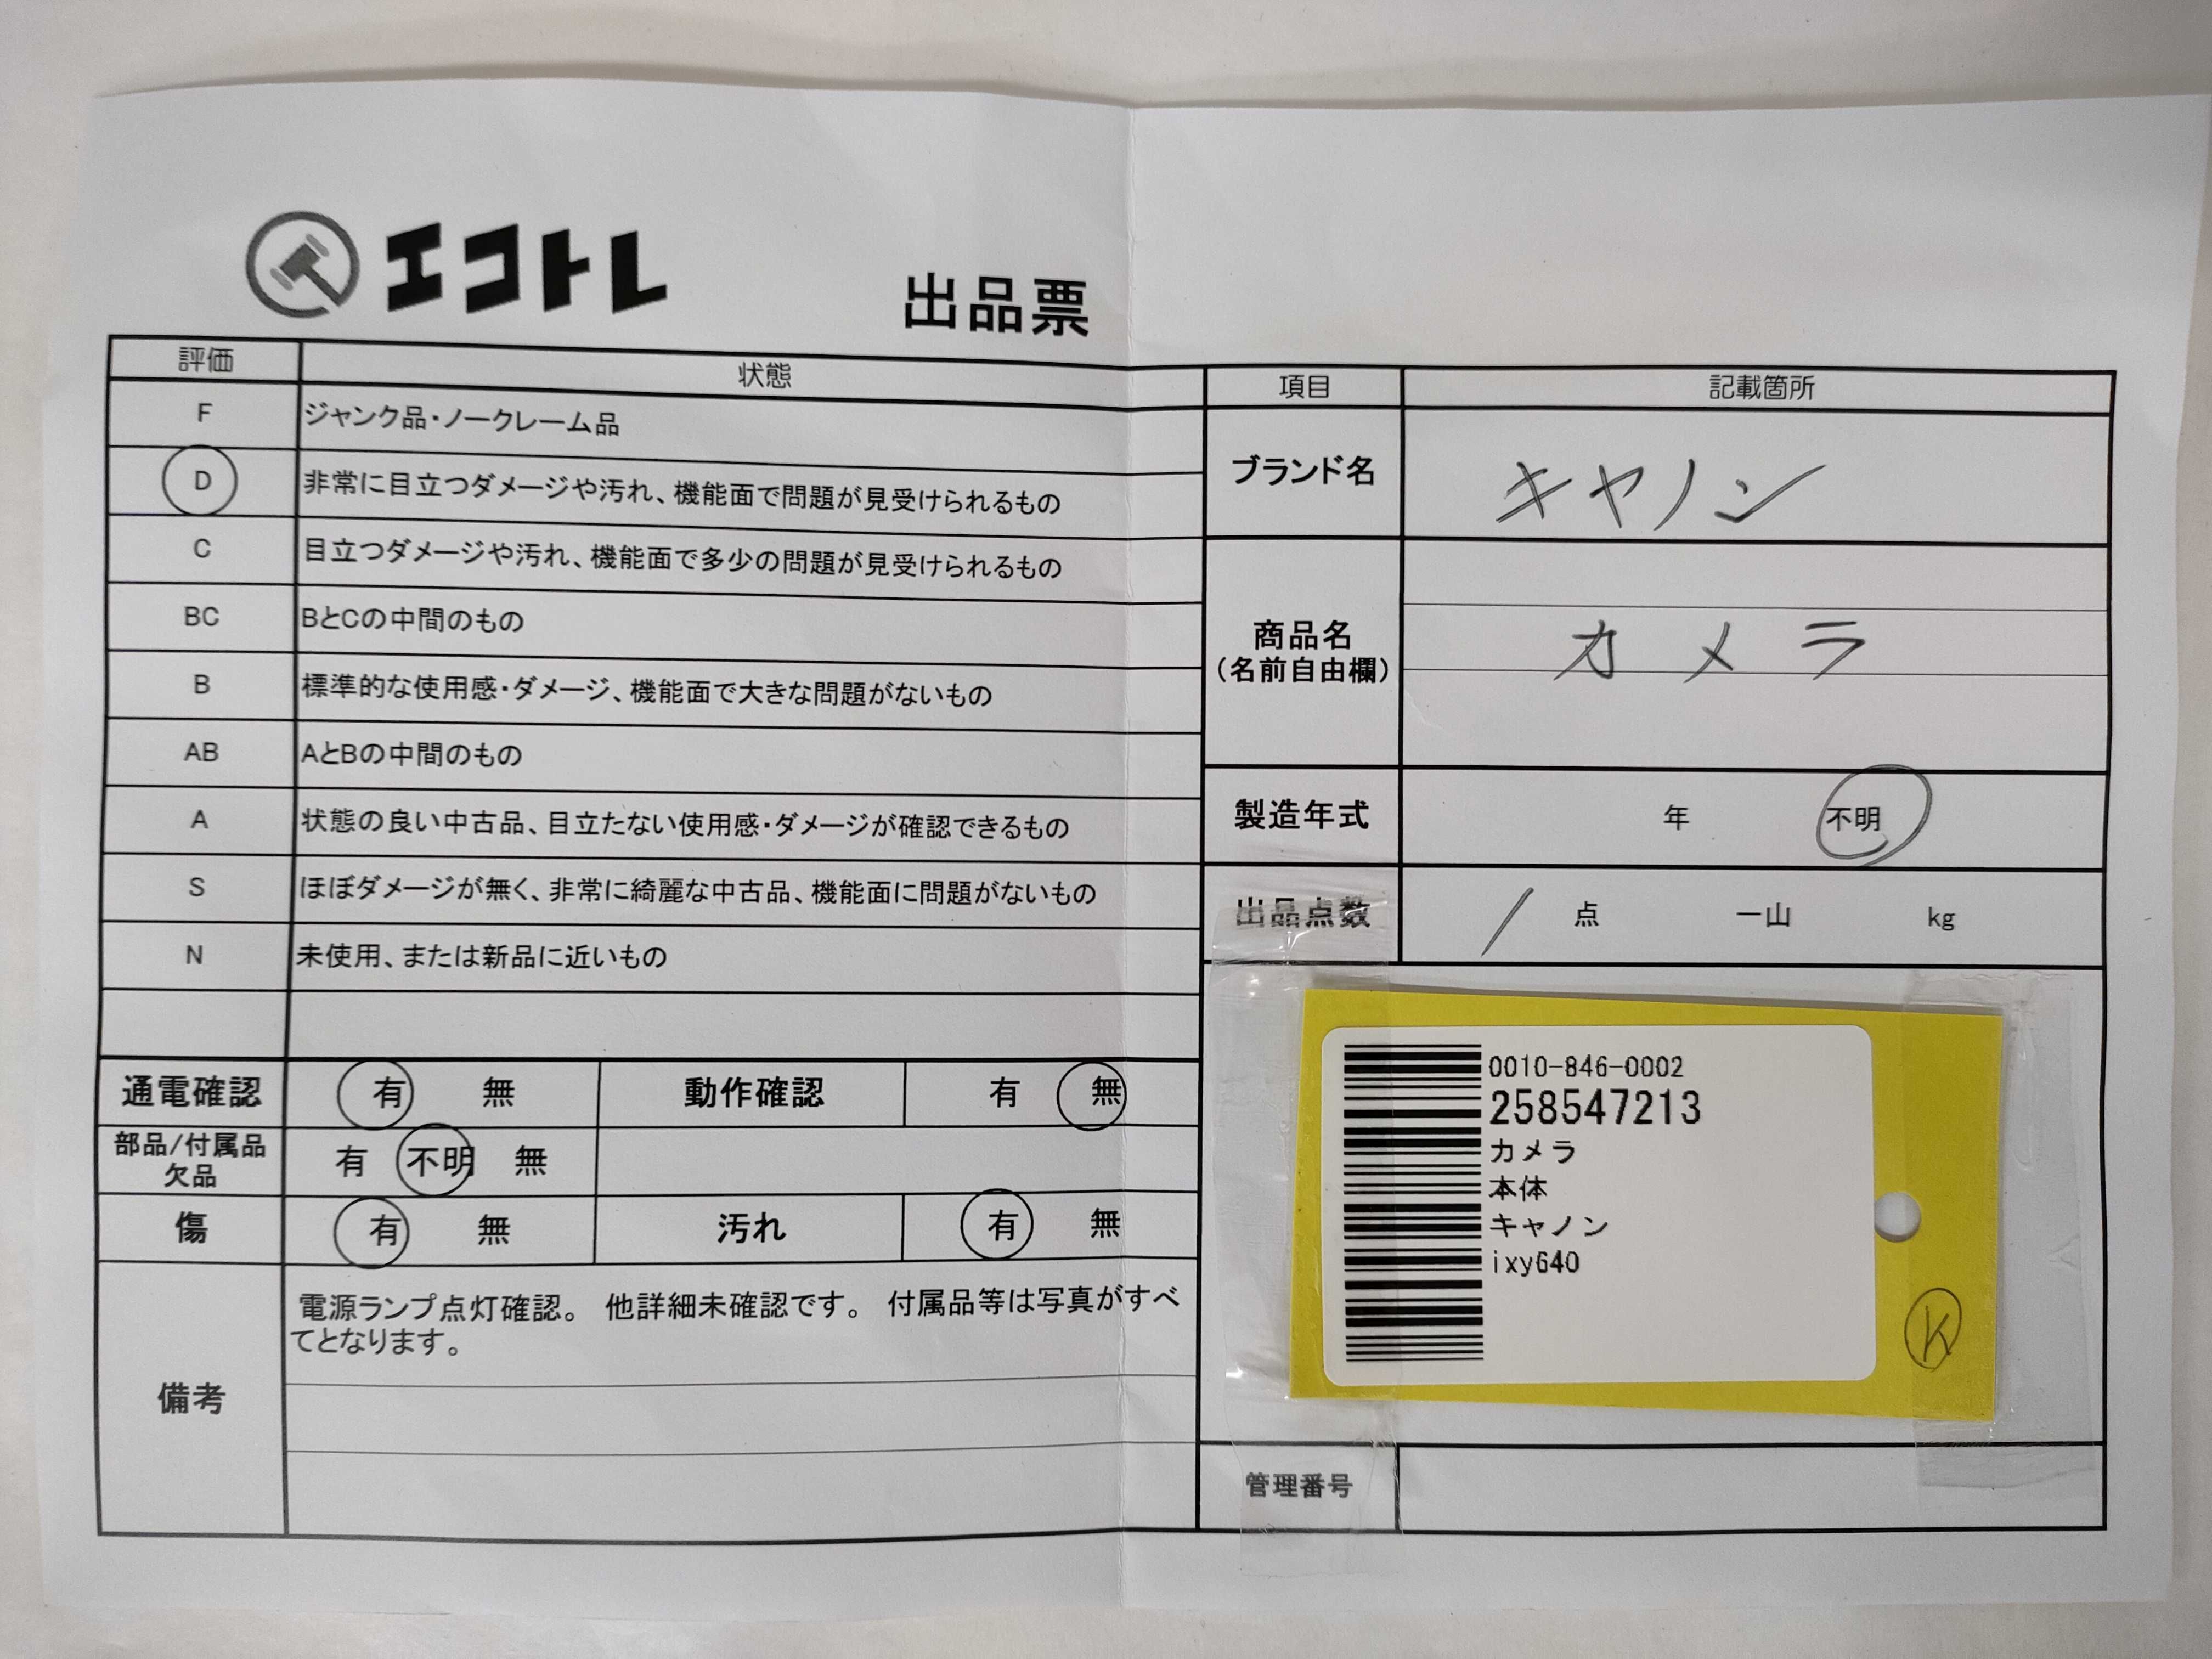 エコトレ
出品票
評価 状態
F ジャンク品・ノークレーム品
D 非常に目立つダメージや汚れ、機能面で問題が見受けられるもの
C 目立つダメージや汚れ、機能面で多少の問題が見受けられるもの
BC BとCの中間のもの
B 標準的な使用感・ダメージ、機能面で大きな問題がないもの
AB AとBの中間のもの
A 状態の良い中古品、目立たない使用感・ダメージが確認できるもの
S ほぼダメージが無く、非常に綺麗な中古品、機能面に問題がないもの
N 未使用、または新品に近いもの
通電確認 有 無 動作確認 有 無
部品/付属品
欠品 有 不明 無
傷 有 無 汚れ 有 無
備考
電源ランプ点灯確認。 他詳細未確認です。 付属品等は写真がすべ
てとなります。
項目 記載箇所
ブランド名 キヤノン
商品名
(名前自由欄)
カメラ
製造年式 年 不明
出品点数 1 点 一山 kg
0010-846-0002
258547213
カメラ
本体
キャノン
ixy640
K
管理番号